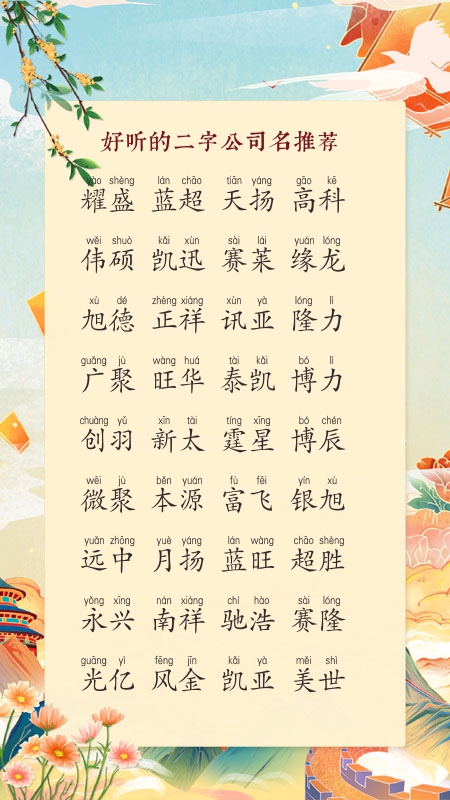 好听的二字公司名推荐
yào shèng lán chāo tiān yáng gāo kē
耀盛 蓝超 天扬 高科
wěi shuò kǎi xùn sài lái yuán lóng
伟硕 凯迅 赛莱 缘龙
xù dé zhèng xiáng xùn yà lóng lì
旭德 正祥 讯亚 隆力
guǎng jù wàng huá tài kǎi bó lì
广聚 旺华 泰凯 博力
chuàng yǔ xīn tài tíng xīng bó chén
创羽 新太 霆星 博辰
wēi jù běn yuán fù fēi yín xù
微聚 本源 富飞 银旭
yuǎn zhōng yuè yáng lán wàng chāo shèng
远中 月扬 蓝旺 超胜
yǒng xīng nán xiáng chí hào sài lóng
永兴 南祥 驰浩 赛隆
guāng yì fēng jīn kǎi yà měi shì
光亿 风金 凯亚 美世